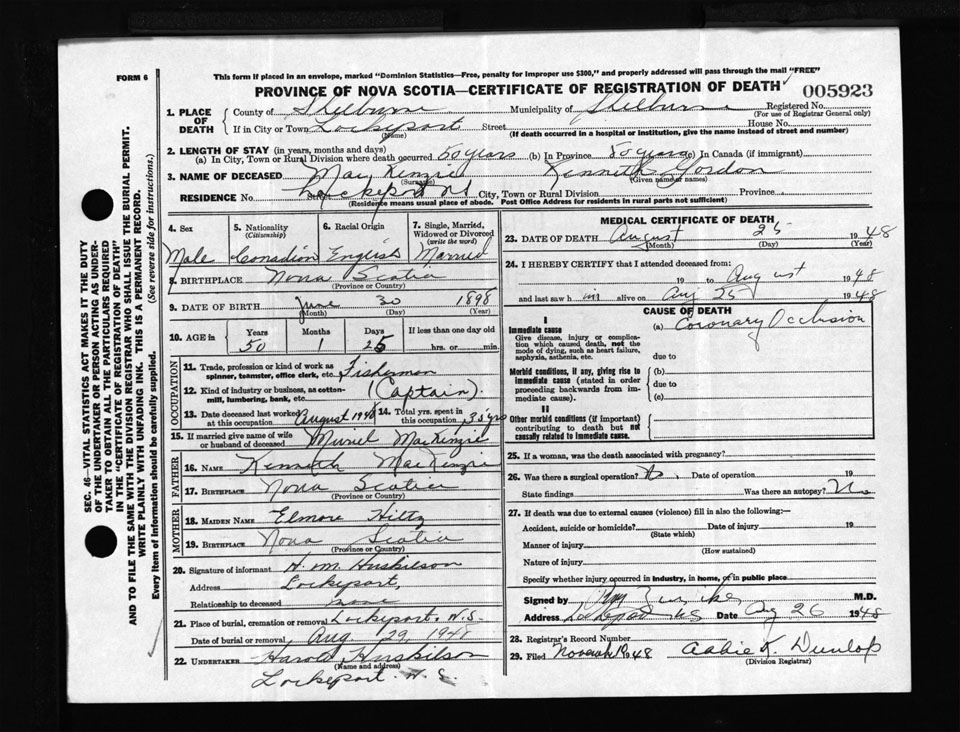 FORM 6
This form if placed in an envelope, marked "Dominion Statistics—Free, penalty for improper use $300," and properly addressed will pass through the mail "FREE"
PROVINCE OF NOVA SCOTIA—CERTIFICATE OF REGISTRATION OF DEATH 005923
1. PLACE OF DEATH County of Shelburne Municipality of Shelburne Registered No.
(For use of Registrar General only)
If in City or Town Lockeport Street House No.
(Name) (If death occurred in a hospital or institution, give the name instead of street and number)
2. LENGTH OF STAY (in years, months and days)
(a) In City, Town or Rural Division where death occurred 50 years (b) In Province 50 years (c) In Canada (if immigrant)
3. NAME OF DECEASED MacKenzie Kenneth Gordon
(Surname) (Given name or names)
RESIDENCE No. Lockeport NS City, Town or Rural Division Province
(Residence means usual place of abode. Post Office Address for residents in rural parts not sufficient)
4. Sex 5. Nationality (Citizenship) 6. Racial Origin 7. Single, Married, Widowed or Divorced (write the word)
Male Canadian English Married
8. BIRTHPLACE Nova Scotia
(Province or Country)
9. DATE OF BIRTH June 30 1898
(Month) (Day) (Year)
10. AGE in Years Months Days If less than one day old
50 1 25 hrs. or min.
OCCUPATION
11. Trade, profession or kind of work as spinner, teamster, office clerk, etc. Fisherman
12. Kind of industry or business, as cotton-mill, lumbering, bank, etc. (Captain)
13. Date deceased last worked at this occupation August 1948 14. Total yrs. spent in this occupation 35 yrs
15. If married give name of wife or husband of deceased Muriel MacKenzie
FATHER
16. NAME Kenneth MacKenzie
17. BIRTHPLACE Nova Scotia
(Province or Country)
MOTHER
18. MAIDEN NAME Elmore Hiltz
19. BIRTHPLACE Nova Scotia
(Province or Country)
20. Signature of informant H. M. Huskilson
Address Lockeport,
Relationship to deceased none
21. Place of burial, cremation or removal Lockeport. N.S.
Date of burial or removal Aug. 29, 1948
22. UNDERTAKER Harold Huskilson
(Name and address)
Lockeport. N.S.
MEDICAL CERTIFICATE OF DEATH
23. DATE OF DEATH August 25 1948
(Month) (Day) (Year)
24. I HEREBY CERTIFY that I attended deceased from:
19 to August 1948
and last saw him alive on Aug 25 1948
CAUSE OF DEATH
I
Immediate cause (a) Coronary Occlusion
Give disease, injury or complication which caused death, not the mode of dying, such as heart failure, asphyxia, asthenia, etc. due to
Morbid conditions, if any, giving rise to immediate cause (stated in order proceeding backwards from immediate). (b)
due to
(c)
II
Other morbid conditions (if important) contributing to death but not causally related to immediate cause.
25. If a woman, was the death associated with pregnancy?
26. Was there a surgical operation? No. Date of operation 19
State findings Was there an autopsy? No
27. If death was due to external causes (violence) fill in also the following:—
Accident, suicide or homicide? Date of injury 19
(State which)
Manner of injury
(How sustained)
Nature of injury
Specify whether injury occurred in industry, in home, or in public place
Signed by M.D.
Address Lockeport NS Date Aug 26 1948
28. Registrar's Record Number
29. Filed 1948 Abbie K. Dunlop
(Division Registrar)
SEC. 46—VITAL STATISTICS ACT MAKES IT THE DUTY
OF THE UNDERTAKER OR PERSON ACTING AS UNDER-
TAKER TO OBTAIN ALL THE PARTICULARS REQUIRED
IN THE "CERTIFICATE OF REGISTRATION OF DEATH"
AND TO FILE THE SAME WITH THE DIVISION REGISTRAR WHO SHALL ISSUE THE BURIAL PERMIT.
WRITE PLAINLY WITH UNFADING INK. THIS IS A PERMANENT RECORD.
Every item of information should be carefully supplied. (See reverse side for instructions.)